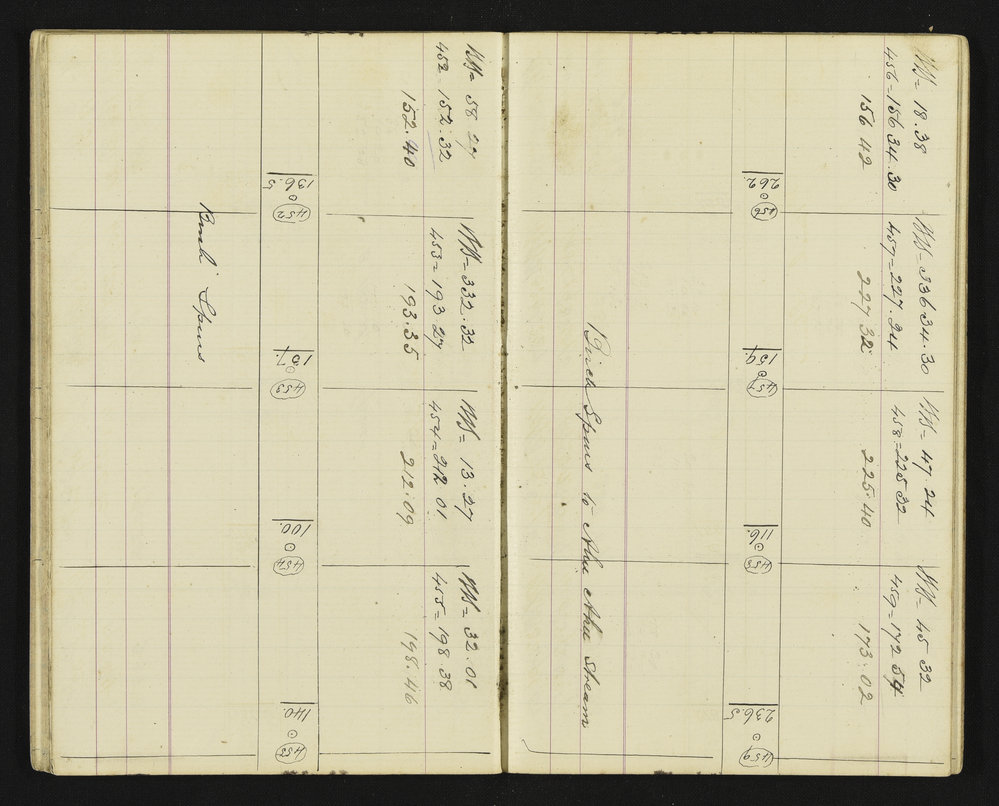 BS= 58 27
452 152.32
152.40
136.5
452
BS= 332.32
453= 193 27
193.35
157.
453
BS= 13.27
454= 212 01
212.09
100.
454
BS= 32.01
455= 198 38
198.46
140.
455
Bush Spurs
BS= 18.38
456= 156 34.30
156 42
262.
456
BS= 336 34.30
457= 227.24
227 32
159.
457
BS= 47.24
458= 225 32
225.40
116.
458
BS= 45 32
459= 172 54
173.02
236.5
459
Birch Spurs to Ahu Ahu Stream